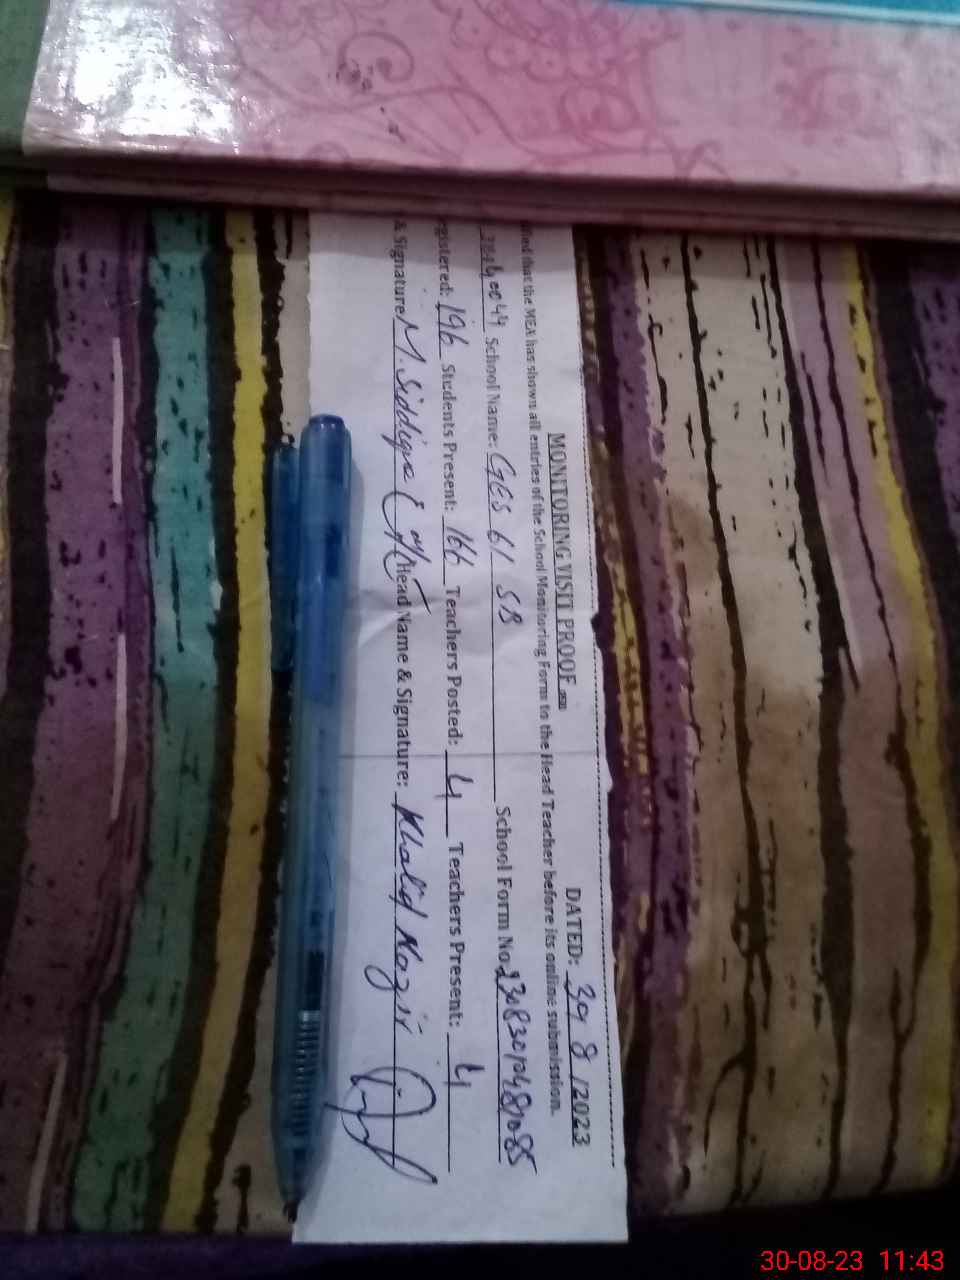 MONITORING VISIT PROOF DATED: 30/8/2023
that the MEA has shown all entries of the School Monitoring Form to the Head Teacher before its online submission.
School Name: GES 61 SB School Form No
gistered: 196 Students Present: 166 Teachers Posted: 4 Teachers Present: 4
& Signature M. Siddique Head Name & Signature: Khalid Nazir
30-08-23 11:43